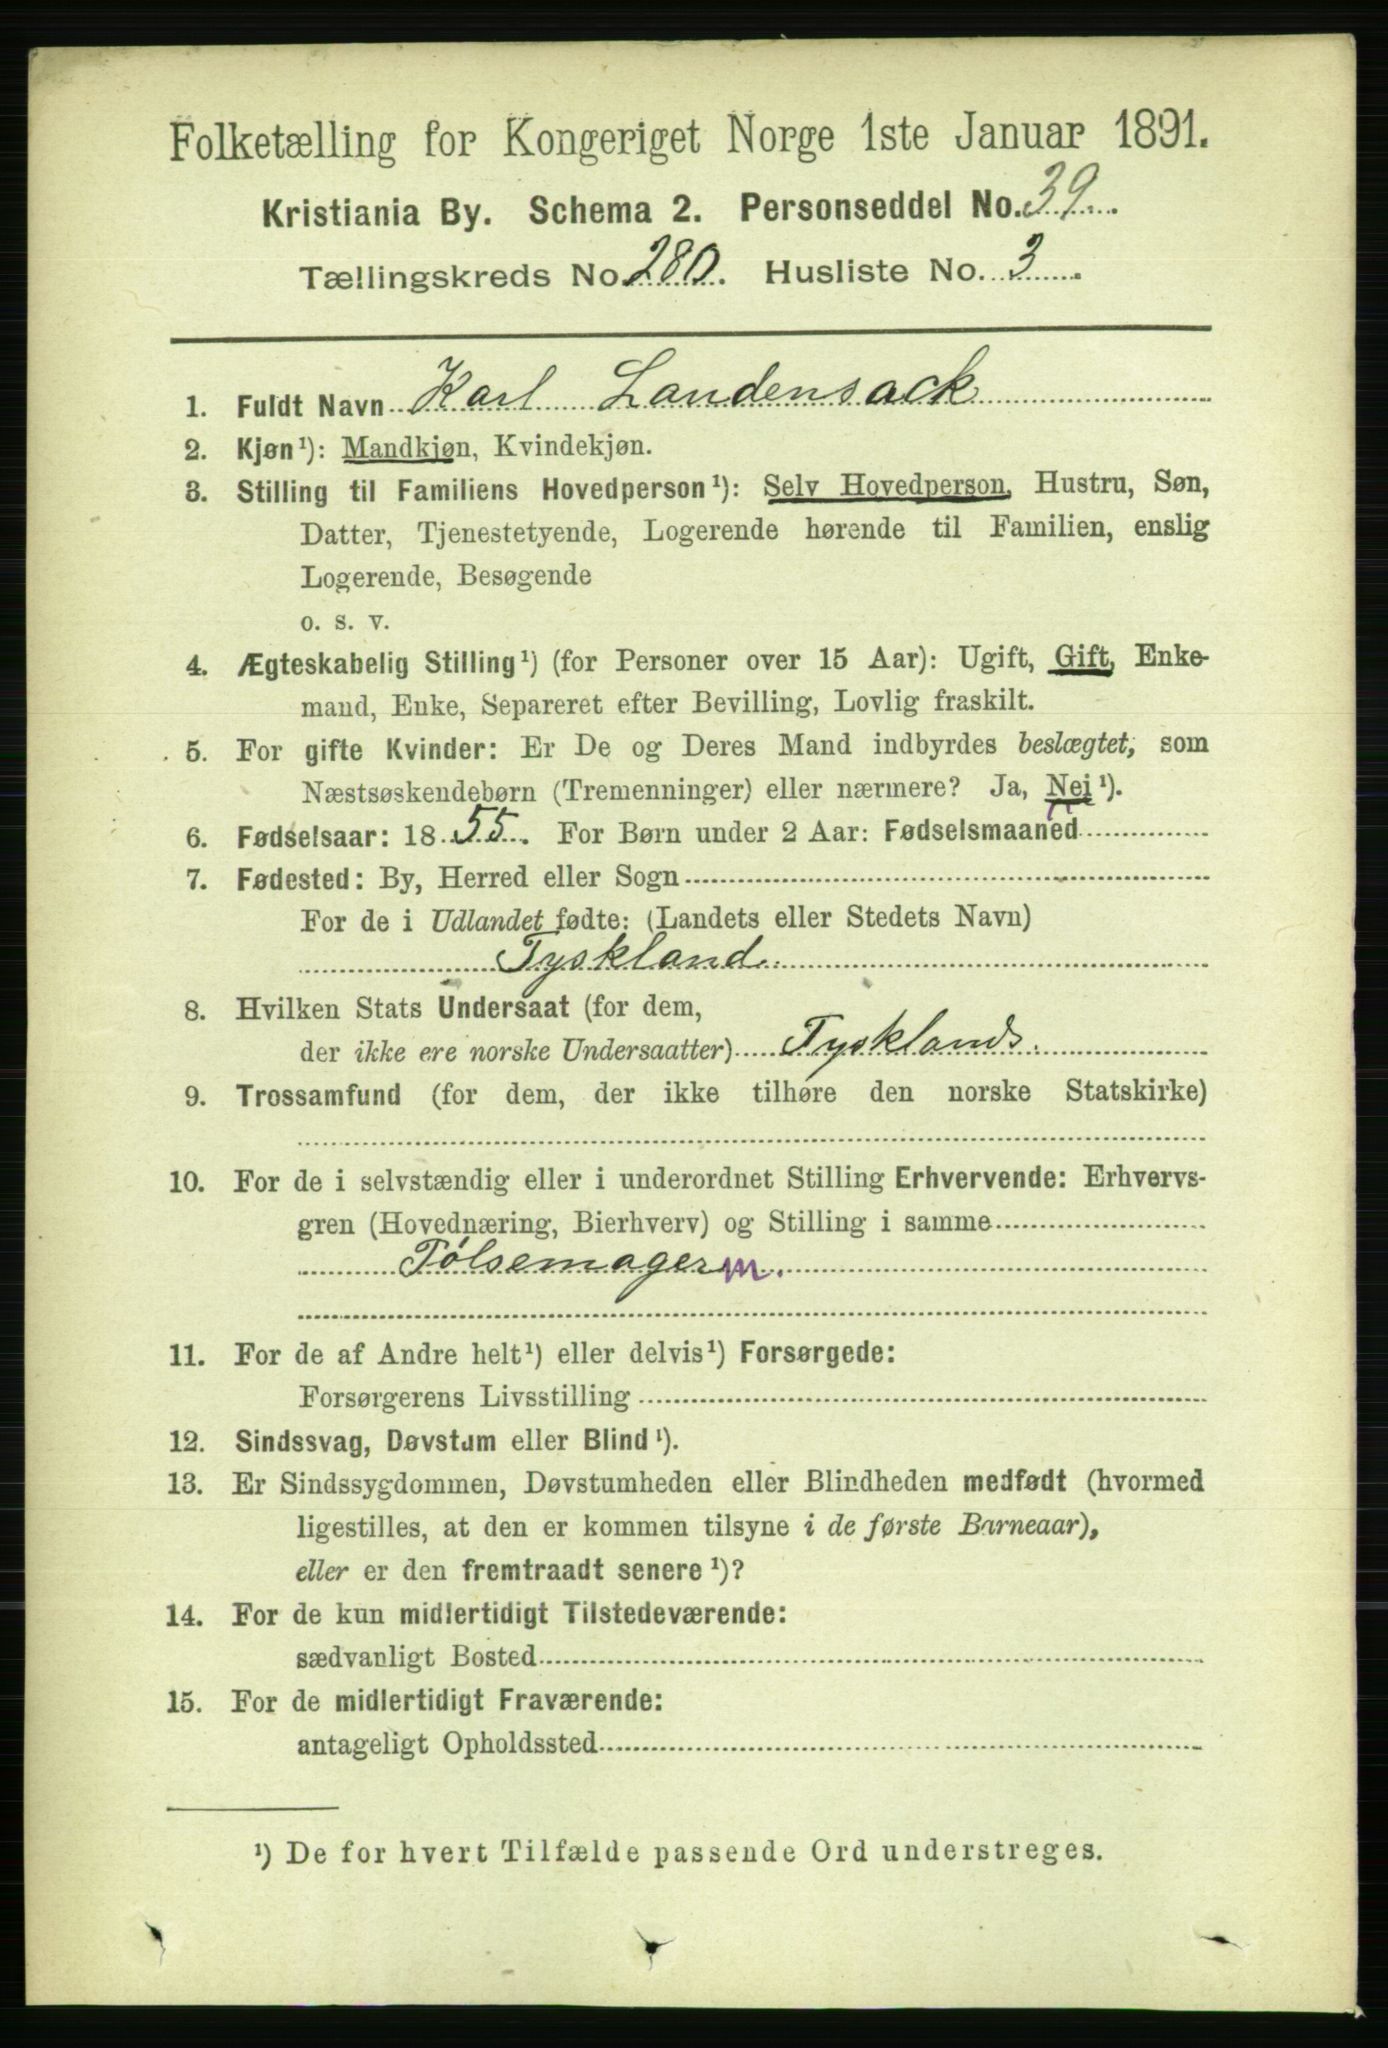 Folketælling for Kongeriget Norge 1ste Januar 1891.
Kristiania By. Schema 2. Personseddel No. 39
Tællingskreds No. 280. Husliste No. 3.
1. Fuldt Navn Karl Landensack
2. Kjøn¹): Mandkjøn, Kvindekjøn.
3. Stilling til Familiens Hovedperson¹): Selv Hovedperson, Hustru, Søn,
Datter, Tjenestetyende, Logerende hørende til Familien, enslig
Logerende, Besøgende
o. s. v.
4. Ægteskabelig Stilling¹) (for Personer over 15 Aar): Ugift, Gift, Enke-
mand, Enke, Separeret efter Bevilling, Lovlig fraskilt.
5. For gifte Kvinder: Er De og Deres Mand indbyrdes beslægtet, som
Næstsøskendebørn (Tremenninger) eller nærmere? Ja, Nei¹).
6. Fødselsaar: 1855. For Børn under 2 Aar: Fødselsmaaned
7. Fødested: By, Herred eller Sogn
For de i Udlandet fødte: (Landets eller Stedets Navn)
Tyskland.
8. Hvilken Stats Undersaat (for dem,
der ikke ere norske Undersaatter) Tysklands.
9. Trossamfund (for dem, der ikke tilhøre den norske Statskirke)
10. For de i selvstændig eller i underordnet Stilling Erhvervende: Erhvervs-
gren (Hovednæring, Bierhverv) og Stilling i samme
Pølsemager m.
11. For de af Andre helt¹) eller delvis¹) Forsørgede:
Forsørgerens Livsstilling
12. Sindssvag, Døvstum eller Blind¹).
13. Er Sindssygdommen, Døvstumheden eller Blindheden medfødt (hvormed
ligestilles, at den er kommen tilsyne i de første Barneaar),
eller er den fremtraadt senere¹)?
14. For de kun midlertidigt Tilstedeværende:
sædvanligt Bosted
15. For de midlertidigt Fraværende:
antageligt Opholdssted
¹) De for hvert Tilfælde passende Ord understreges.